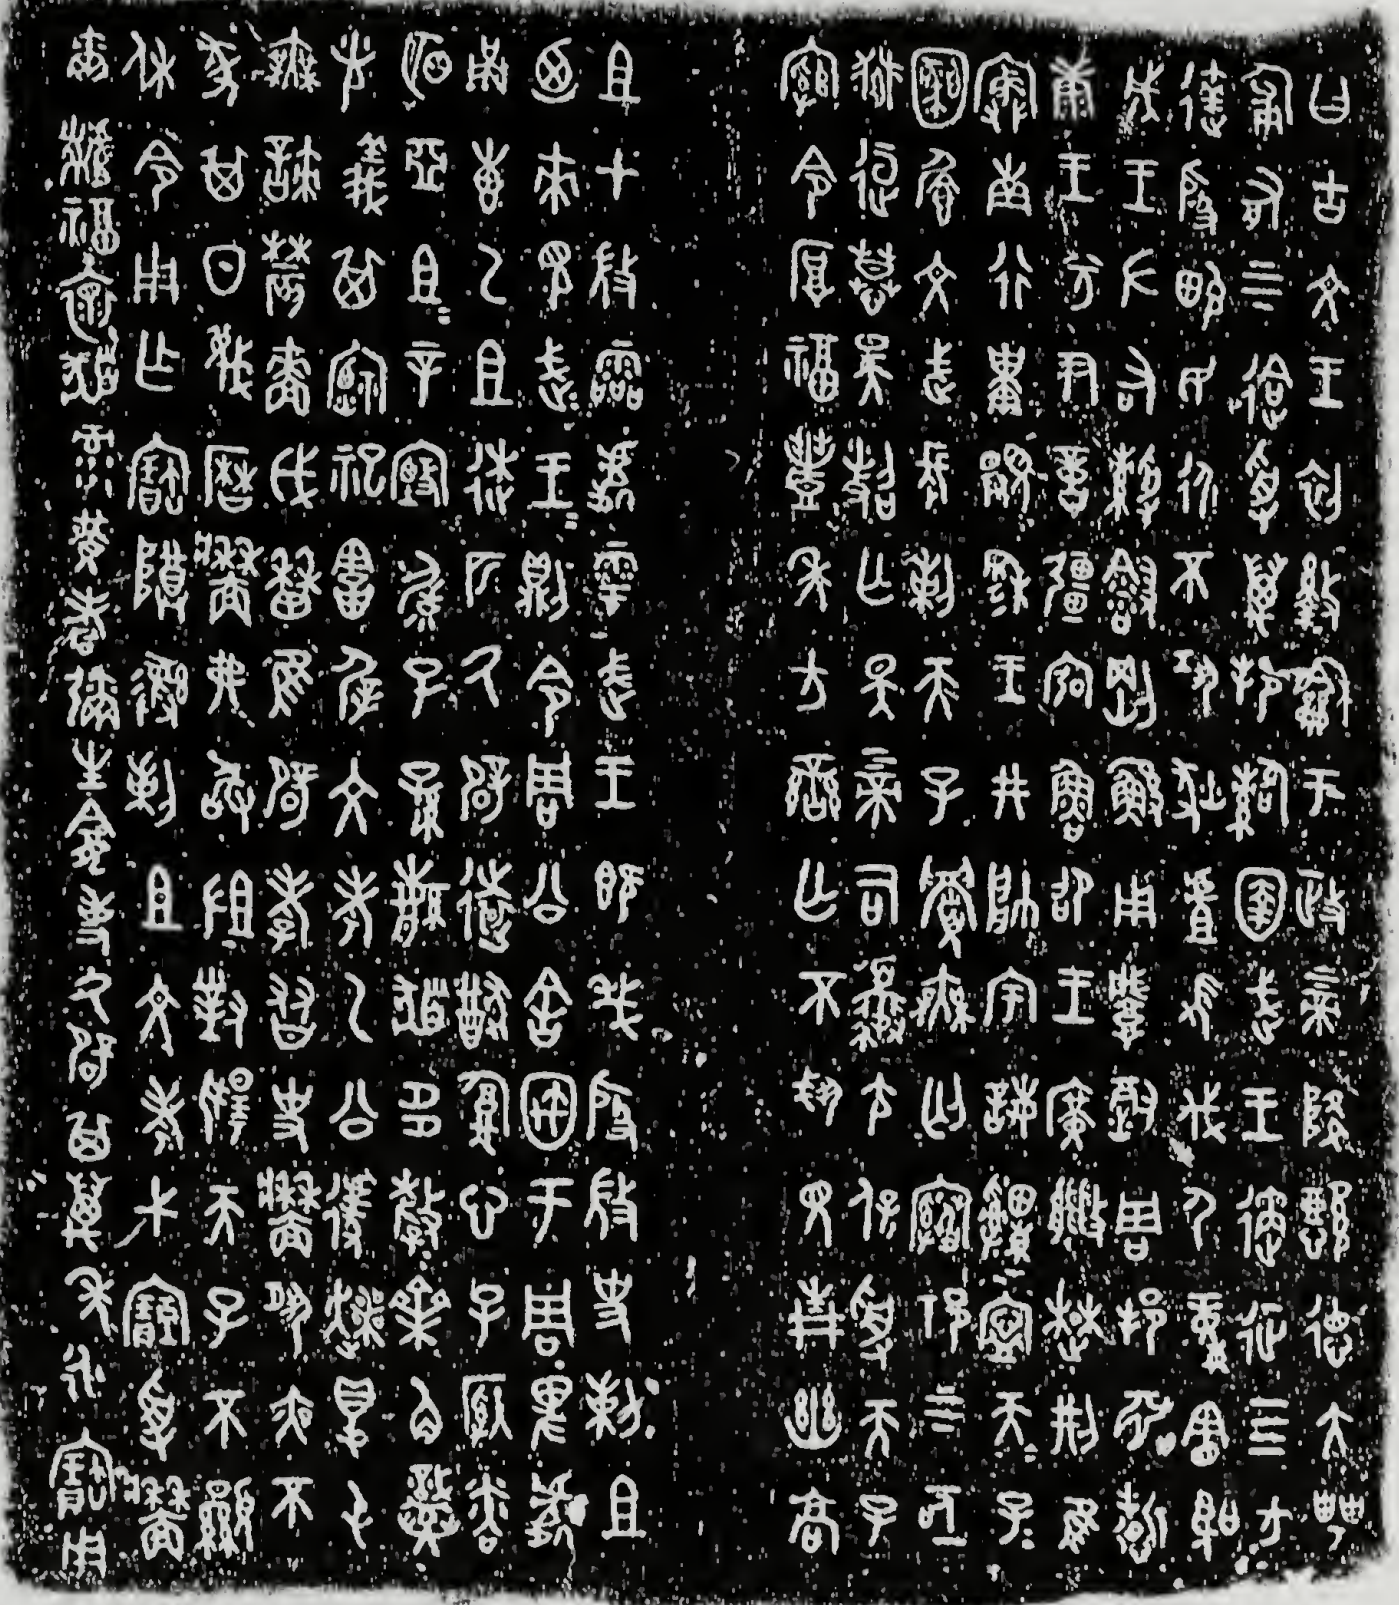 曰古文王初盭龢于政上帝降懿德大甹
匍有上下迨受萬邦𩁹圉武王遹征四方
達殷畯民永不巩狄虘𢼸伐夷童憲聖
成王左右綬會剛鯀用肇徹周邦淵哲
康王兮尹啻彊宖魯卲王廣能楚荊隹
寏南行祗覭穆王井帥宇誨𤕌寧天子=
圝屖文武長剌天子眉無匄𥨪祁上下亟
獄逗慕昊照亡斁上帝司夒尢保受天子
綰令厚福豐年方蠻亡不𢦚見青幽高
且甲𢼸霝處雩武王既𢦏殷𢼸史剌且
迺來見武=王=則令周公舍圀于周卑處
甬叀乙且逑匹氒辟遠猷腹心子納粦
明亞且=辛甄毓子孫繁猶多釐櫅角熾
光義其禋祀㝬遲文考乙公遽爽得屯
無諫農嗇戉曆隹辟孝友史牆夙夜不
彖其日蔑曆牆弗敢沮對揚天子不顯
休令用作寶尊彝剌且文考弋貯受牆
爾髗福懷猶彔黃耇彌生龕事氒辟其萬年永寶用